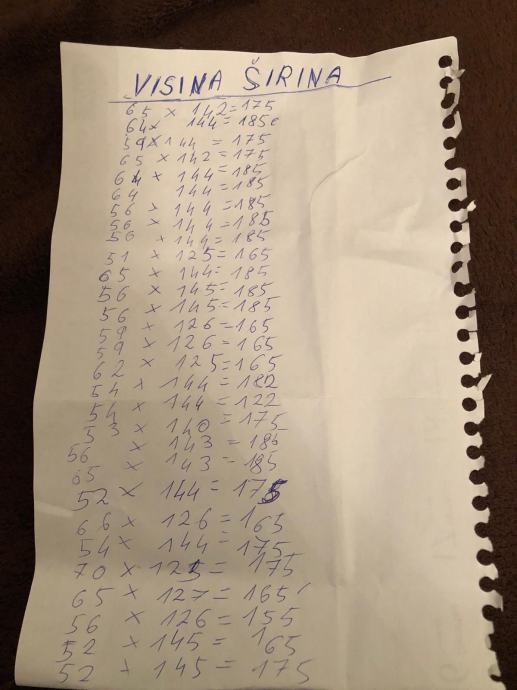 VISINA ŠIRINA
65 x 142=175
64x 144=185
59x144 = 175
65 x 142=175
64 x 144=185
64 144=185
56 x 144=185
56 x 144=185
56 x 144=185
51 x 125=165
65 x 144=185
56 x 145=185
56 x 145=185
59 x 126=165
59 x 126=165
62 x 125=165
54 x 144=182
54 x 144=122
53 x 140=175
56 x 143=186
65 x 143=185
52 x 144=175
66 x 126=165
54 x 144=175
70 x 125=175
65 x 127=165
56 x 126=155
52 x 145=165
52 x 145=175